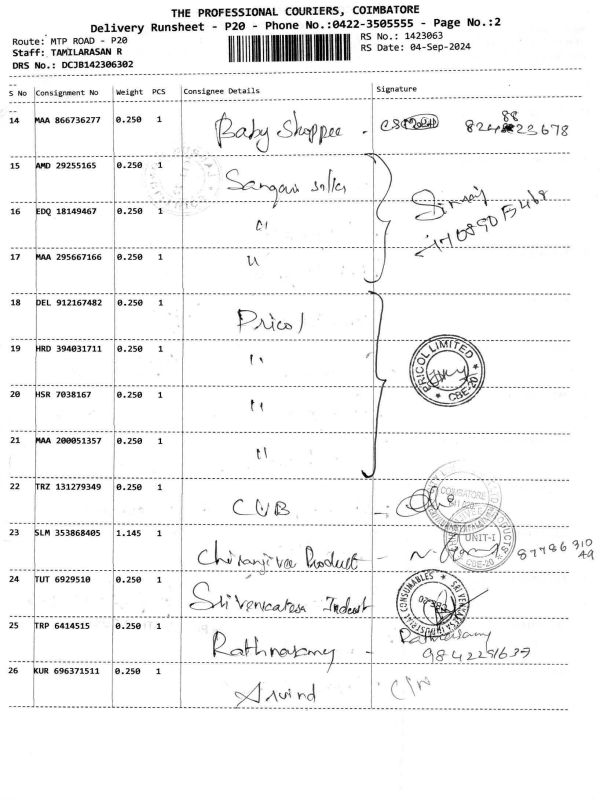 THE PROFESSIONAL COURIERS, COIMBATORE
Delivery Runsheet - P20 - Phone No.:0422-3505555 - Page No.:2
Route: MTP ROAD - P20
Staff: TAMILARASAN R
DRS No.: DCJB142306302
RS No.: 1423063
RS Date: 04-Sep-2024
S No Consignment No Weight PCS Consignee Details Signature
14 MAA 866736277 0.250 1 Baby Shoppee -
15 AMD 29255165 0.250 1 Sangavi sales
16 EDQ 18149467 0.250 1 "
17 MAA 295667166 0.250 1 "
18 DEL 912167482 0.250 1 Pricol
PRICOL LIMITED
* CBE-20 *
19 HRD 394031711 0.250 1 "
20 HSR 7038167 0.250 1 "
21 MAA 200051357 0.250 1 "
22 TRZ 131279349 0.250 1 CUB -
COIMBATORE
23 SLM 353868405 1.145 1 Chiranjivee Product -
UNIT-I
CBE-20
87786 310
49
24 TUT 6929510 0.250 1 Sri Venkatesa Indust
SRI VENKATESA INDUSTRIAL CONSUMABLES *
CBE-20
25 TRP 6414515 0.250 1 Rathnasamy - Rathnasamy
26 KUR 696371511 0.250 1 Arvind